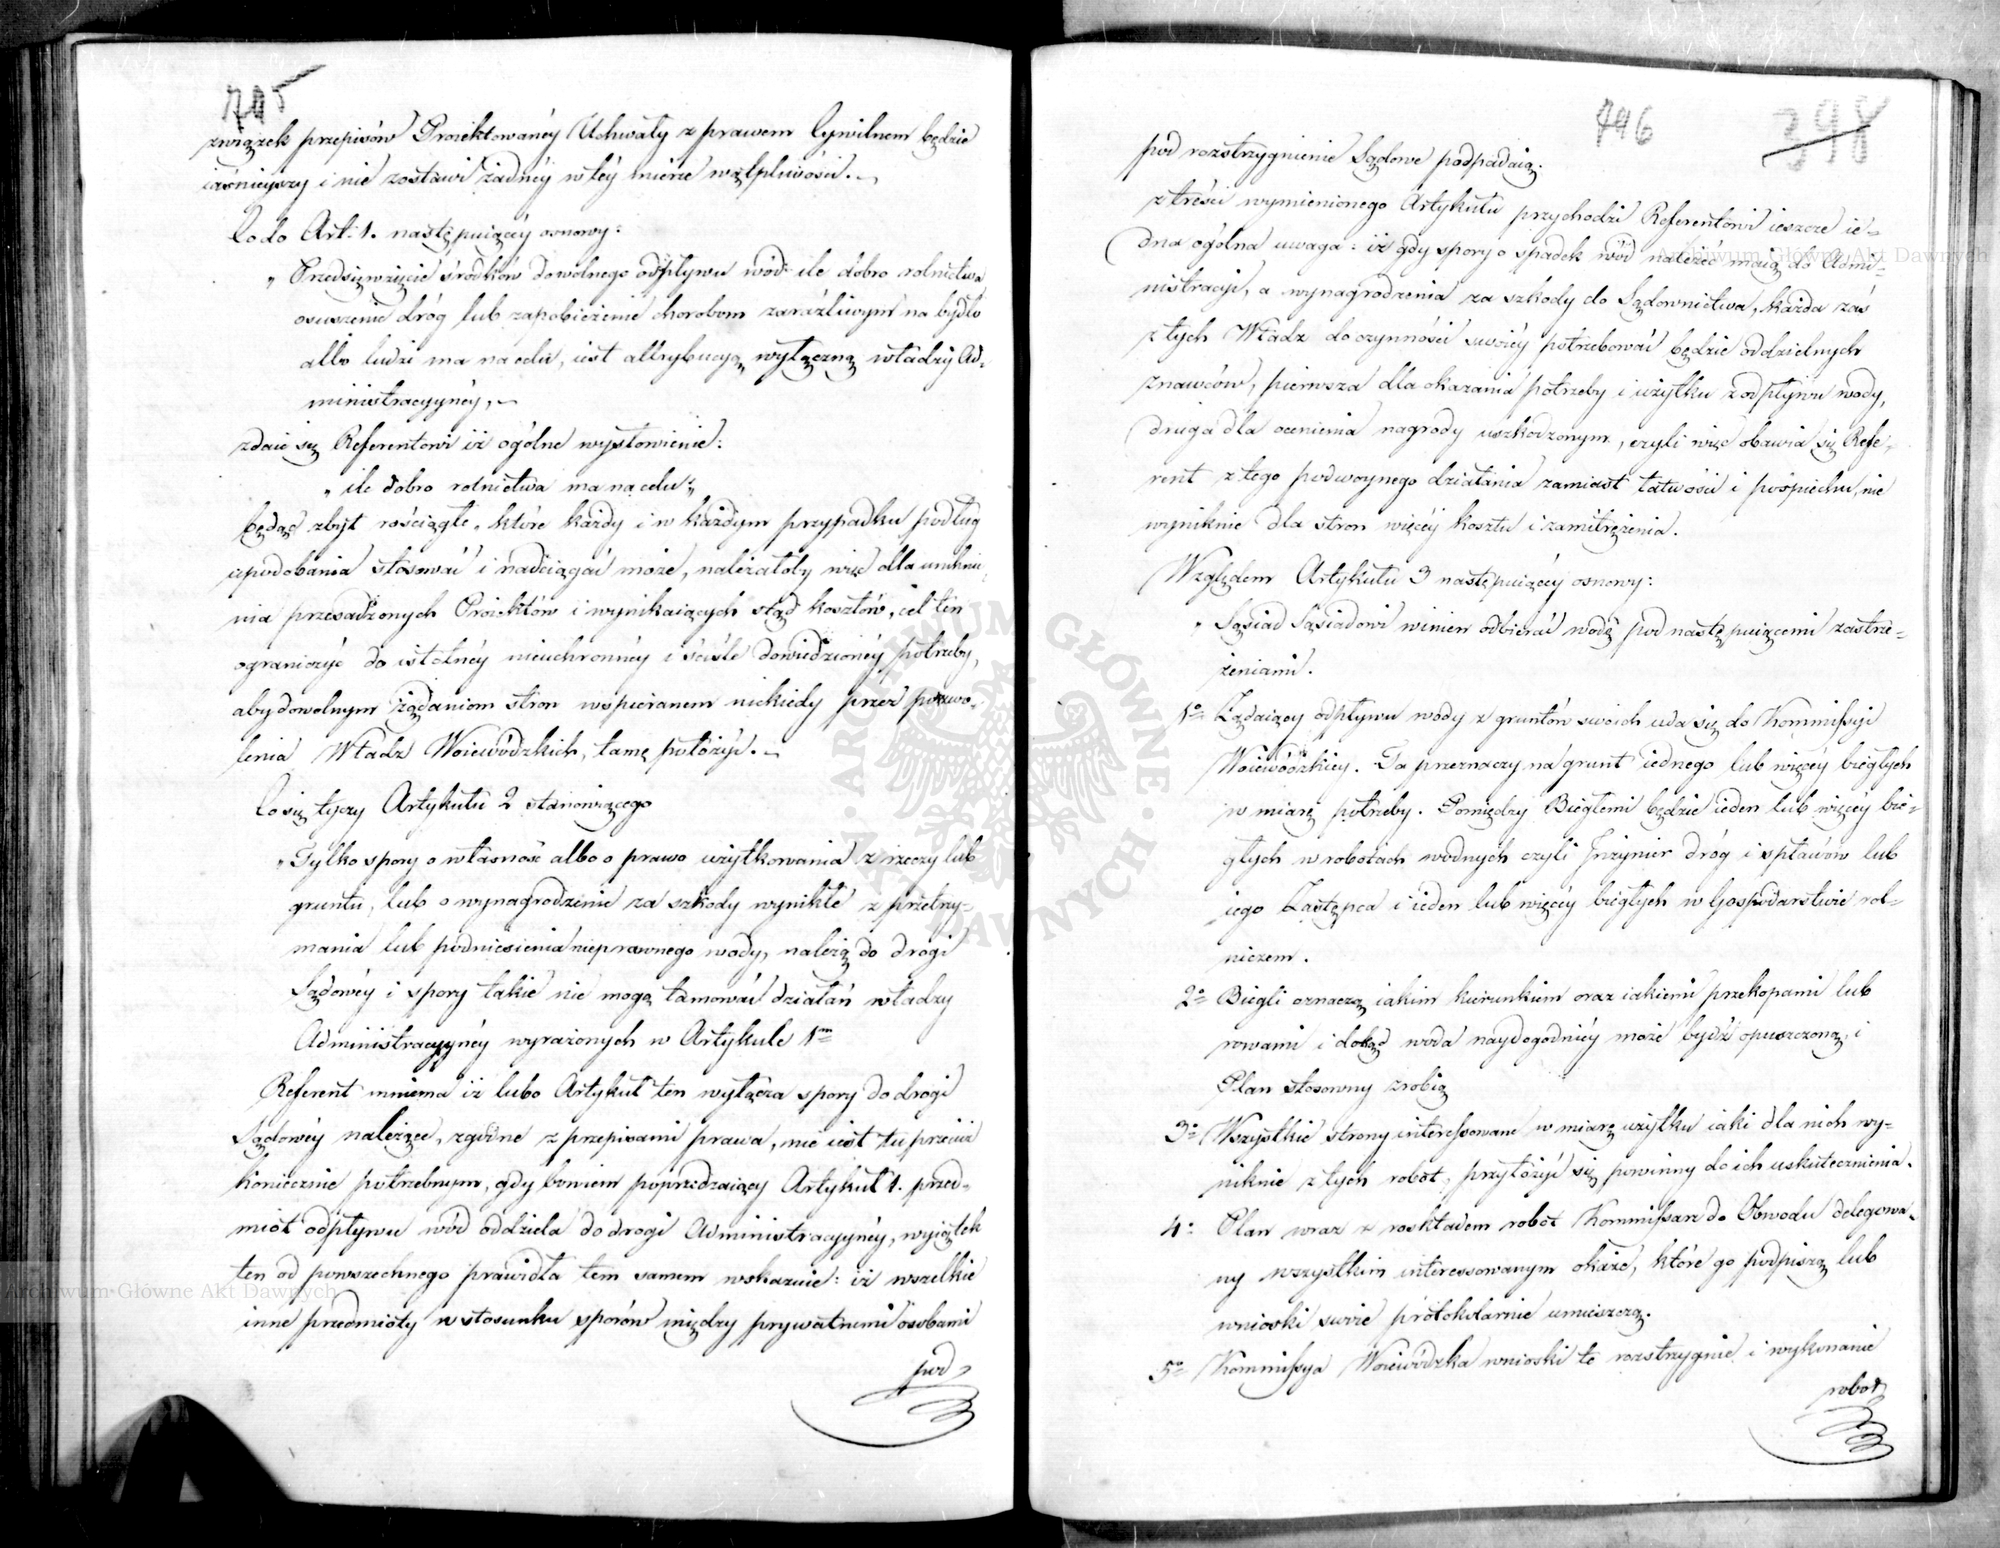 745
związek przepisów Proiektowanéy Uchwały z prawem Cywilnem będzie
iaśnieyszy i nie zostawi żadnéy w téy mierze wątpliwości.
Co do Art. 1. następuiącéy osnowy:
„ Przedsięwzięcie środków dowolnego odpływu wód ile dobro rolnictwa
osuszenie dróg lub zapobieżenie chorobom zaraźliwym na bydło
albo ludzi ma na celu, iest attrybucyą wyłączną władzy Ad-
ministracyynéy,
zdaie się Referentowi iż ogólne wysłowienie:
„ ile dobro rolnictwa ma na celu „
będąc zbyt rościągłe, które każdy i w każdym przypadku podług
upodobania stosować i nadciągać może, należałoby więc dla uniknie-
nia przesadzonych Proiektów i wynikaiących stąd kosztów, cel ten
ograniczyć do istotnéy nieuchronnéy i ściśle dowiedzionéy potrzeby,
aby dowolnym żądaniom stron wspieranem niekiedy przez pozwo-
lenia Władz Woiewódzkich, tamę położyć.
Co się tyczy Artykułu 2 stanowiącego
„ Tylko spory o własność albo o prawo użytkowania z rzeczy lub
gruntu, lub o wynagrodzenie za szkody wynikłe z przetrzy-
mania lub podniesienia nieprawnego wody, należą do drogi
Sądowéy i spory takie nie mogą tamować działań władzy
Administracyynéy wyrażonych w Artykule 1m
Referent mniema iż lubo Artykuł ten wyłącza spory do drogi
Sądowéy należące, zgodne z przepisami prawa, nie iest tu przecież
koniecznie potrzebnym, gdy bowiem poprzedzaiący Artykuł 1. przed-
miot odpływu wód oddziela do drogi Administracyynéy, wyiątek
ten od powszechnego prawidła tem samem wskazuie: iż wszelkie
inne przedmioty w stosunku sporów między prywatnemi osobami
pod
446
398
pod rozstrzygnienie Sądowe podpadaią.
z treści wymienionego Artykułu przychodzi Referentowi ieszcze ie-
dna ogólna uwaga: iż gdy spory o spadek wód należeć maią do Admi-
nistracyi, a wynagrodzenia za szkody do Sądownictwa, każda zaś
z tych Władz do czynności swoiéy potrzebować będzie oddzielnych
znawców, pierwsza dla okazania potrzeby i użytku z odpływu wody,
druga dla ocenienia nagrody uszkodzonym, czyli więc obawia się Refe-
rent z tego podwoynego działania zamiast łatwości i pośpiechu, nie
wyniknie dla stron więcéy kosztu i zamitrężenia.
Względem Artykułu 3 następuiącéy osnowy:
„ Sąsiad Sąsiadowi winien odbierać wodę pod następuiącemi zastrze-
żeniami.
1o Żądaiący odpływu wody z gruntów swoich uda się do Kommissyi
Woiewódzkiey. Ta przeznaczy na grunt iednego lub więcéy biegłych
w miarę potrzeby. Pomiędzy Biegłemi będzie ieden lub więcéy bie-
głych w robotach wodnych czyli Inżynier dróg i spławów lub
iego Zastępca i ieden lub więcéy biegłych w Gospodarstwie rol-
niczem.
2o Biegli oznaczą iakim kierunkiem oraz iakiemi przekopami lub
rowami i dokąd woda naydogodniéy może bydź opuszczoną, i
Plan stosowny zrobią
3o Wszystkie strony interessowane w miarę użytku iaki dla nich wy-
niknie z tych robot, przyłożyć się powinny do ich uskutecznienia.
4o Plan wraz z rozkładem robot Kommissarz do Obwodu delegowa-
ny wszystkim interessowanym okaże, które go podpiszą lub
wnioski swoie protokolarnie umieszczą.
5o Kommissya Woiewódzka wnioski te rozstrzygnie i wykonanie
robot
Archiwum Główne Akt Dawnych
Archiwum Główne Akt Dawnych
ARCHIWUM GŁÓWNE AKT DAWNYCH